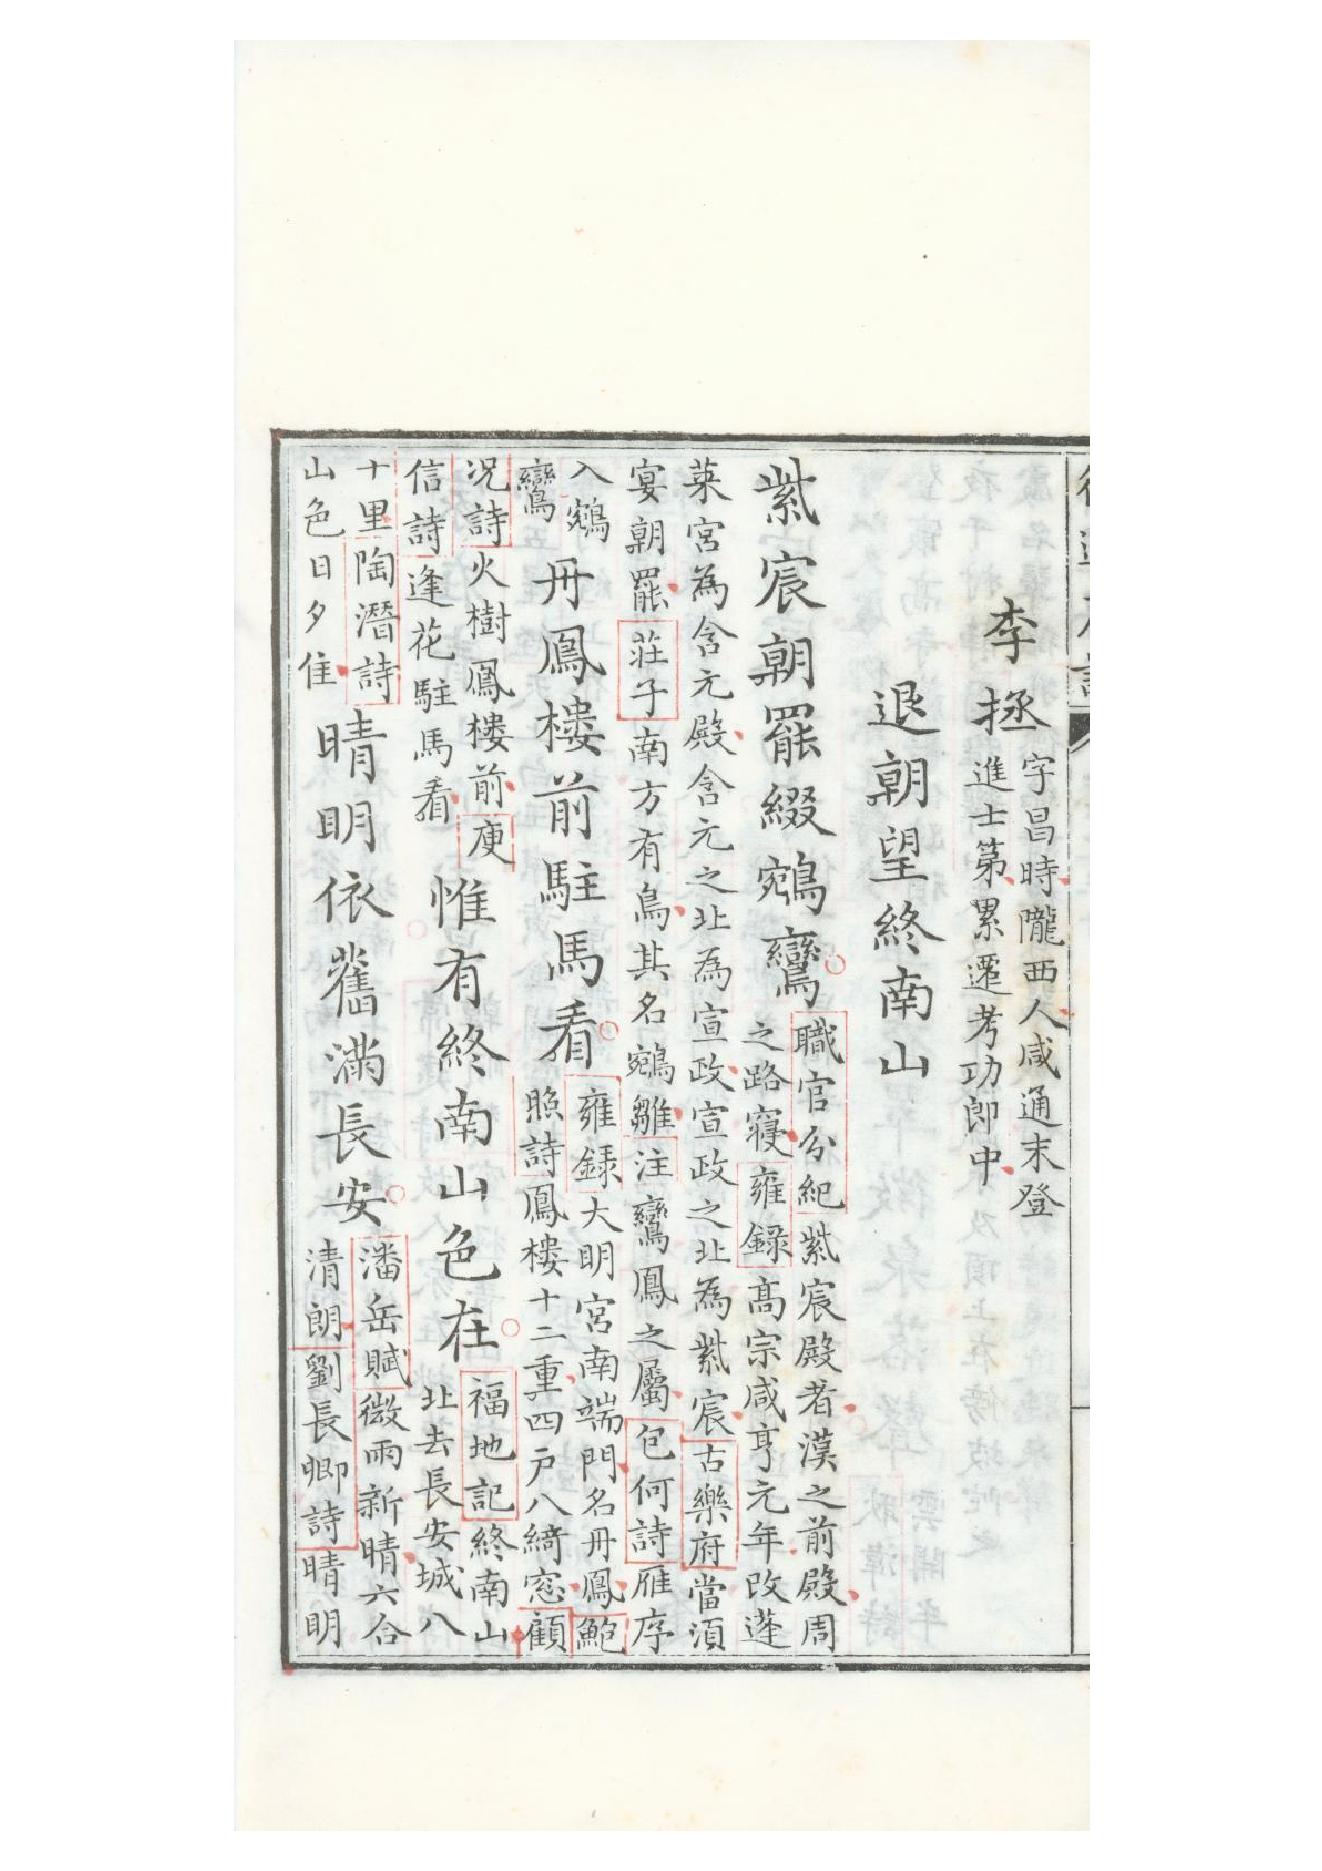 李拯
字昌時隴西人咸通末登
進士第累遷考功郎中
退朝望終南山
紫宸朝罷綴鵷鸞
職官分紀紫宸殿者漢之前殿周
之路寢雍録髙宗咸亨元年改蓬
萊宮為含元殿含元之北為宣政宣政之北為紫宸古樂府當須
宴朝罷莊子南方有鳥其名鵷雛注鸞鳳之屬包何詩雁序
入鵷
鸞
丹鳳樓前駐馬看
雍録大明宮南端門名丹鳳鮑
照詩鳳樓十二重四戶八綺窓顧
况詩火樹鳳樓前庾
信詩逢花駐馬看
惟有終南山色在
福地記終南山
北去長安城八
十里陶潛詩
山色日夕佳
晴明依舊滿長安
潘岳賦微雨新晴六合
清朗劉長卿詩晴明